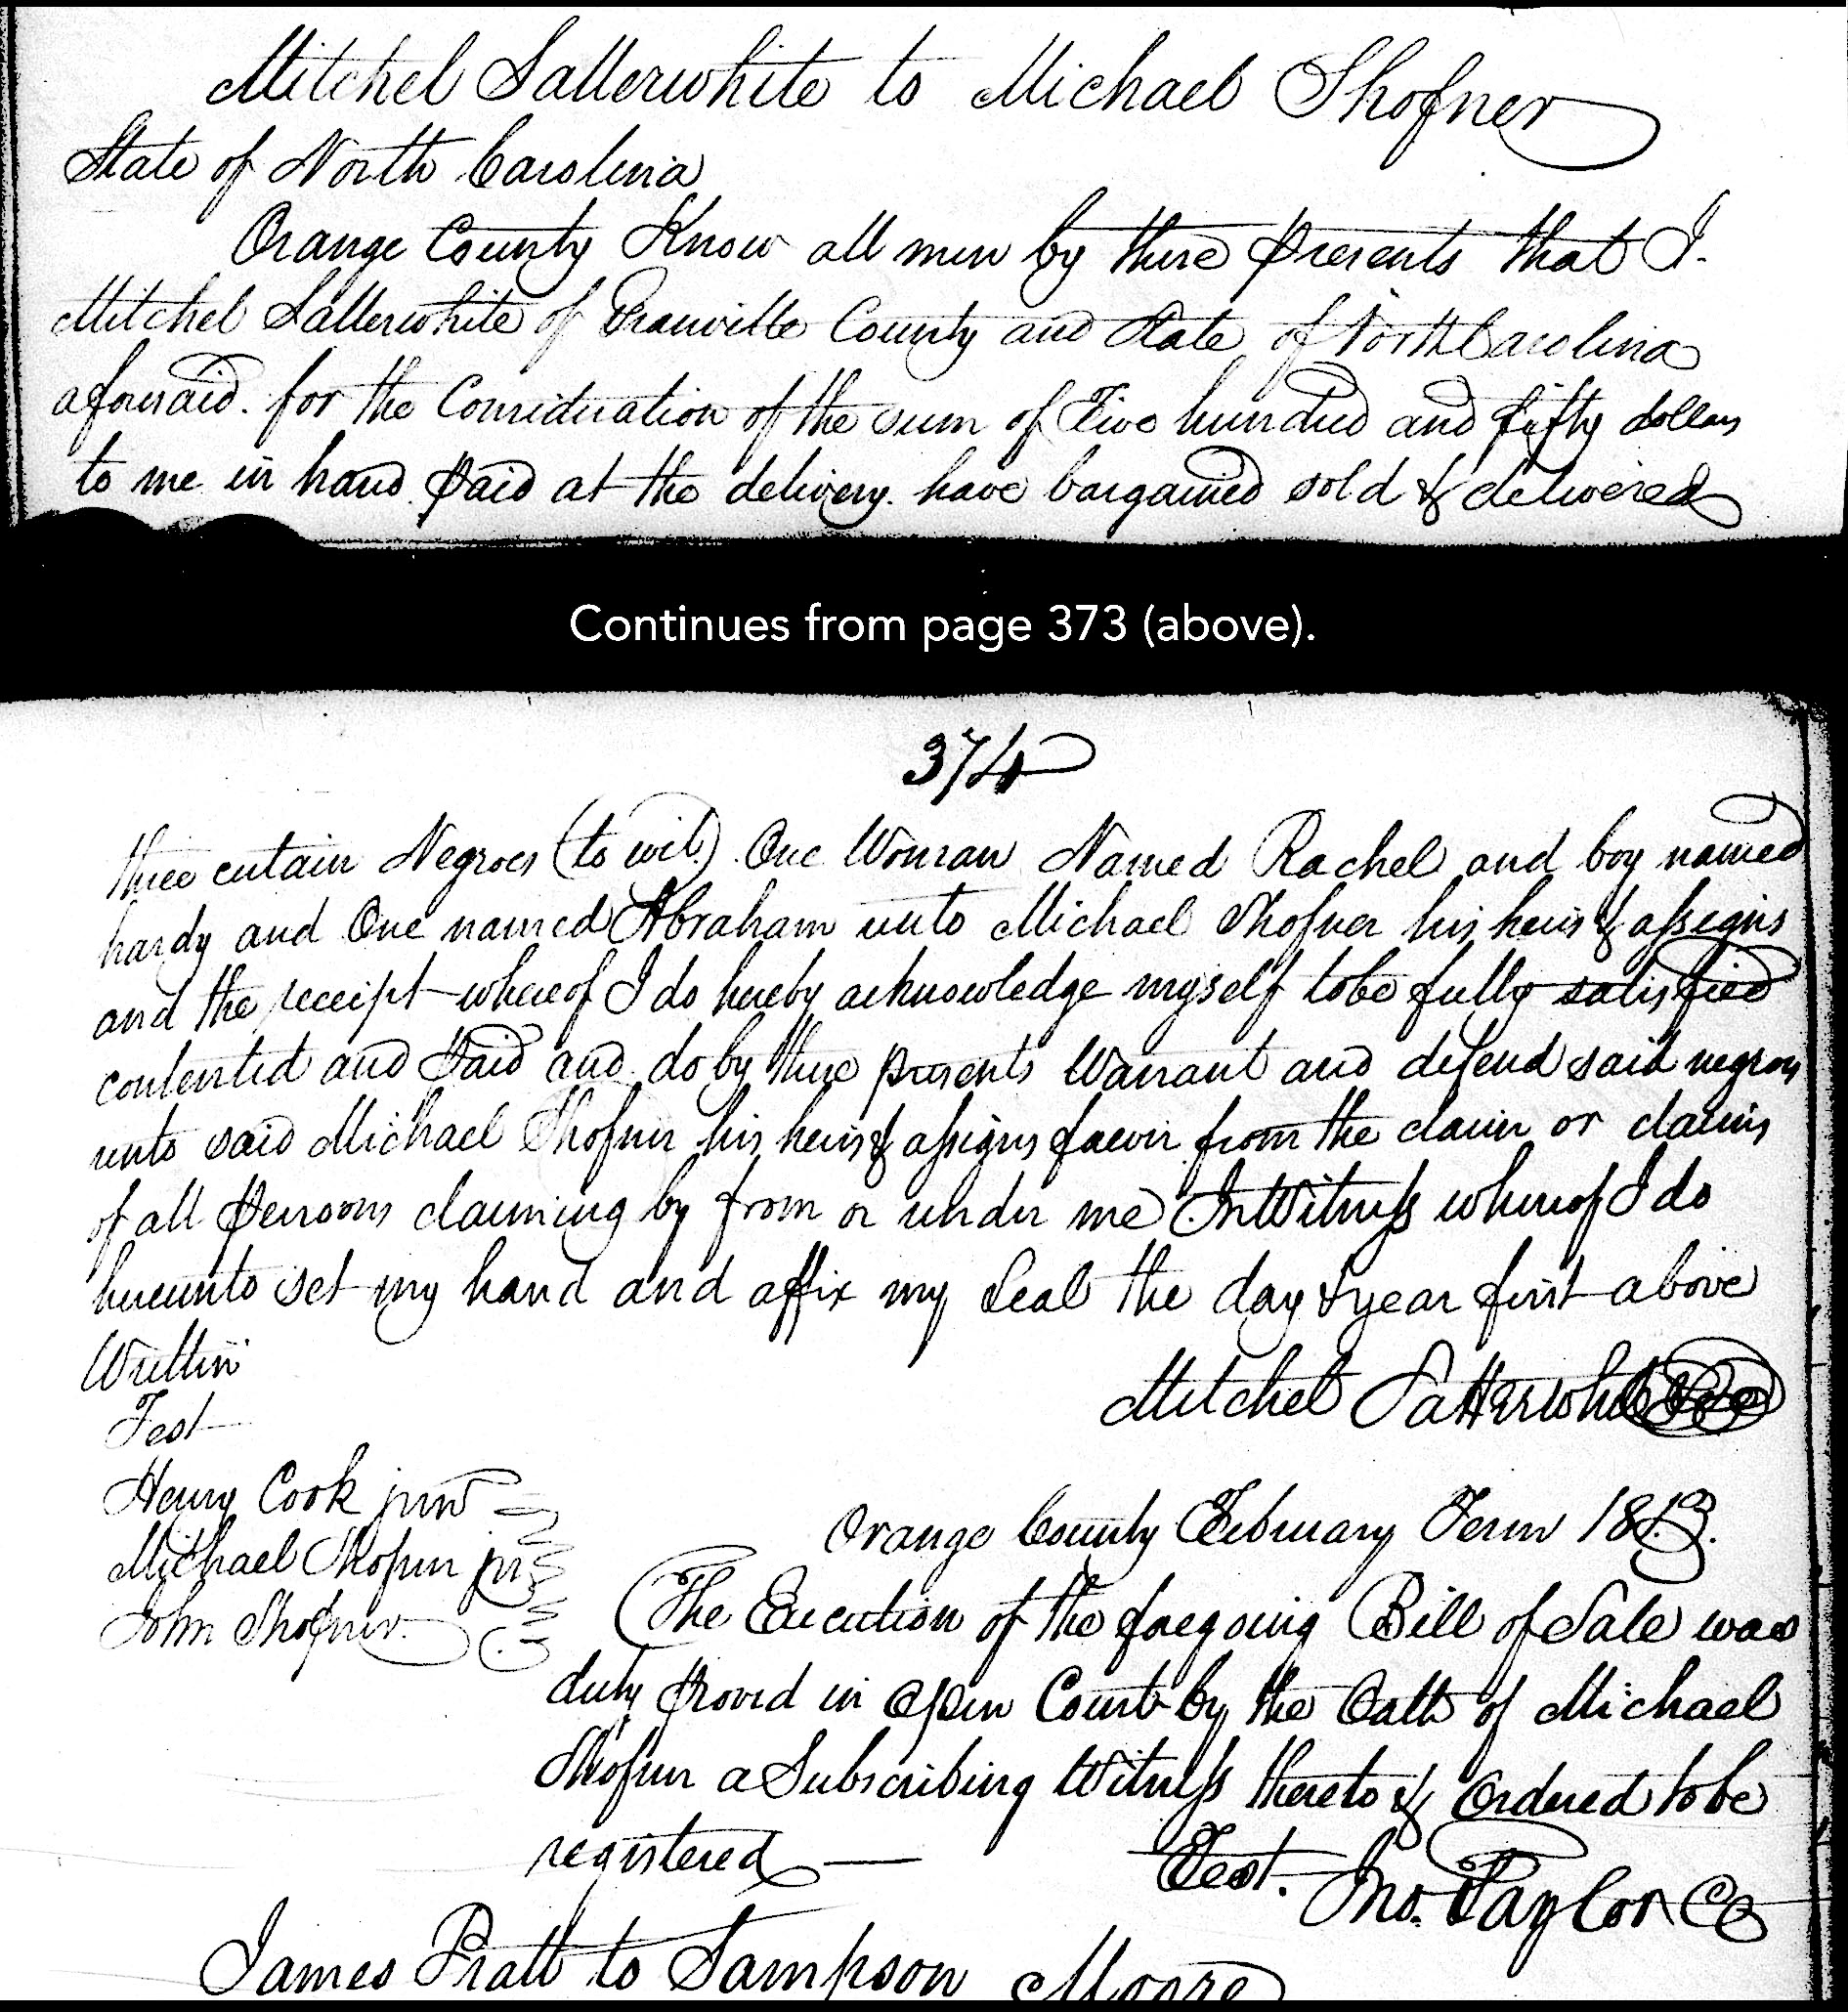 Mitchel Satterwhite to Michael Shofner
State of North Carolina
Orange County Know all men by these presents that I.
Mitchel Satterwhite of Granville County and State of North Carolina
aforesaid. for the Consideration of the sum of Five hundred and fifty dollars
to me in hand paid at the delivery. have bargained sold & delivered
Continues from page 373 (above).
374
three certain Negroes (to wit.) One Woman Named Rachel and boy named
hardy and One named Abraham unto Michael Shofner his heirs & assigns
and the receipt whereof I do hereby acknowledge myself to be fully satisfied
contented and paid and do by these presents Warrant and defend said negroes
unto said Michael Shofner his heirs & assigns forever from the claim or claims
of all persons claiming by from or under me In Witness whereof I do
hereunto set my hand and affix my Seal the day & year first above
Written
Test
Mitchel Satterwhite
Henry Cook junr
Michael Shofner jr
John Shofner.
Orange County February Term 1813.
The Execution of the foregoing Bill of Sale was
duly proved in open Court by the Oath of Michael
Shofner a Subscribing Witness thereto & Ordered to be
registered
Test. Jno. Taylor CC
James Pratt to Sampson Moore